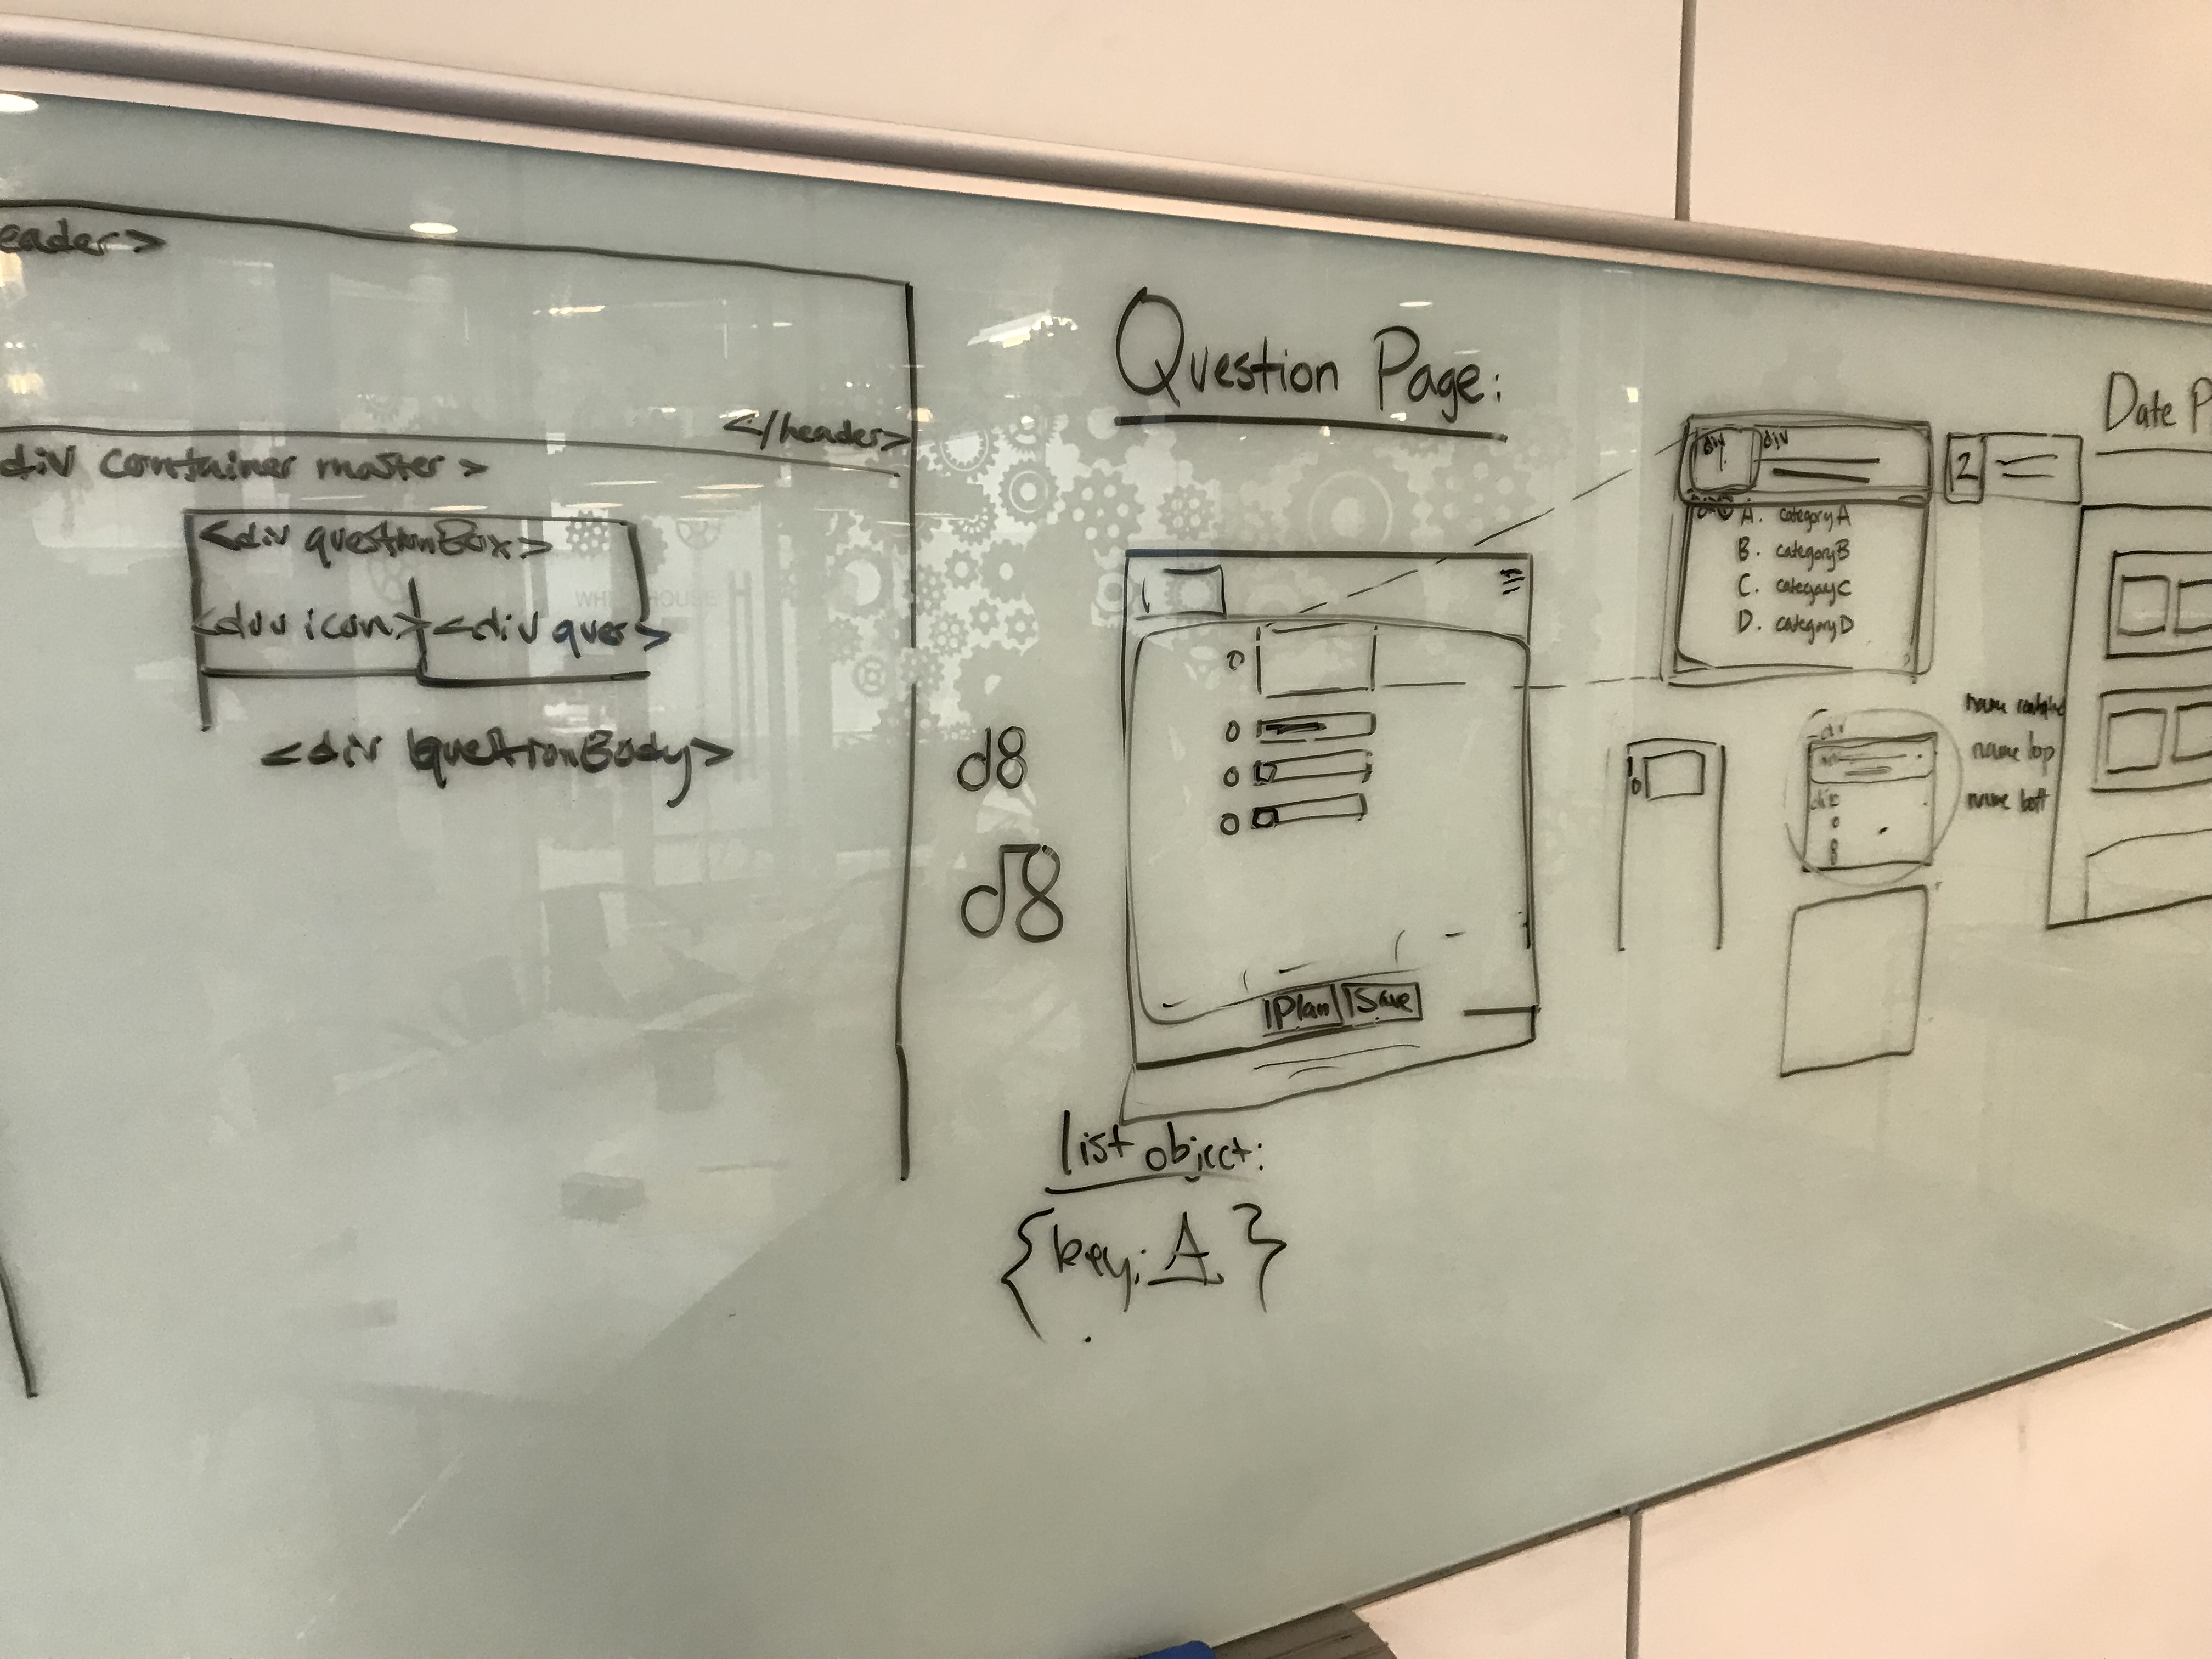 eader>
</header>
div container master >
<div questionBox>
<div icon> <div ques>
<div questionBody>
d8
d8
Question Page:
Plan Save
list object:
{key: A }
div div
1
A. category A
B. category B
C. category C
D. category D
2
name top
name bott
Date P